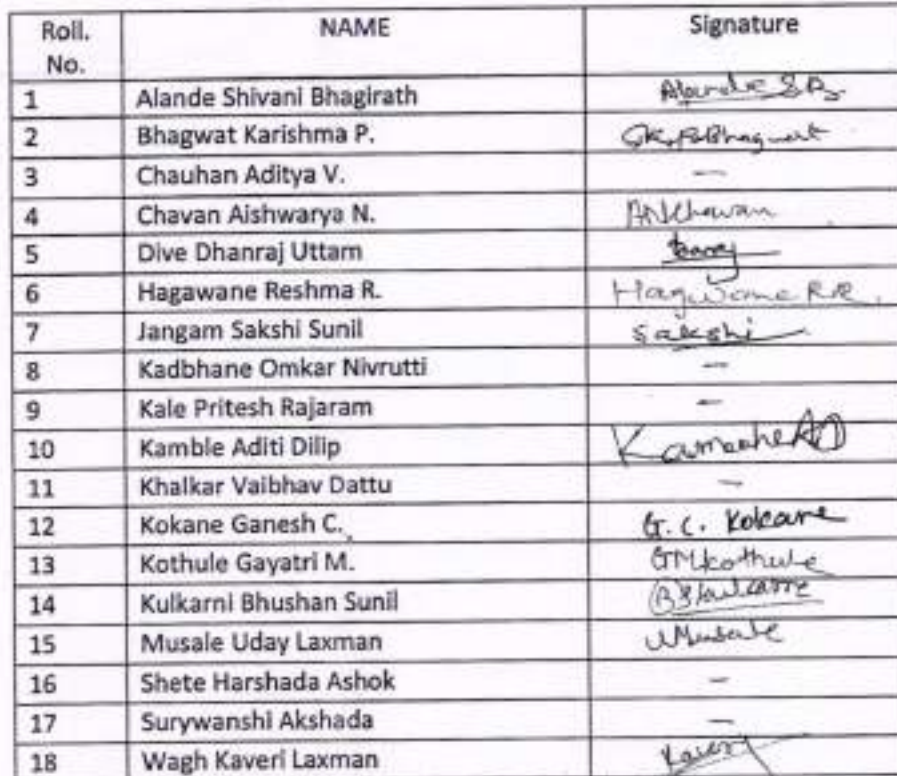 Roll. No. NAME Signature
1 Alande Shivani Bhagirath Alande S B.
2 Bhagwat Karishma P. Bhagwat
3 Chauhan Aditya V. —
4 Chavan Aishwarya N. ANChavan
5 Dive Dhanraj Uttam
6 Hagawane Reshma R. Hagawane R.R.
7 Jangam Sakshi Sunil Sakshi
8 Kadbhane Omkar Nivrutti —
9 Kale Pritesh Rajaram —
10 Kamble Aditi Dilip
11 Khalkar Vaibhav Dattu —
12 Kokane Ganesh C. G. C. Kokane
13 Kothule Gayatri M. GMKothule
14 Kulkarni Bhushan Sunil
15 Musale Uday Laxman UMusale
16 Shete Harshada Ashok —
17 Surywanshi Akshada —
18 Wagh Kaveri Laxman